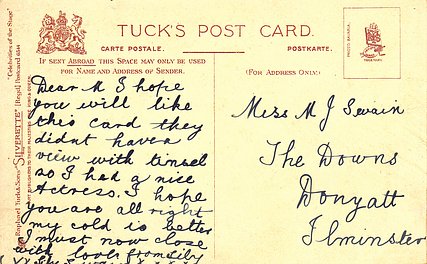 TUCK'S POST CARD.
CARTE POSTALE. POSTKARTE.
IF SENT ABROAD THIS SPACE MAY ONLY BE USED
FOR NAME AND ADDRESS OF SENDER.
(FOR ADDRESS ONLY.)
"Celebrities of the Stage"
Raphael Tuck & Sons' "SILVERETTE" [Regd.] Postcard
Dear M I hope
you will like
this card they
didnt have a
view with tinsel
so I had a nice
actress. I hope
you are all right
my cold is better
I must now close
with love from
Miss M J Swain
The Downs
Donyatt
Ilminster